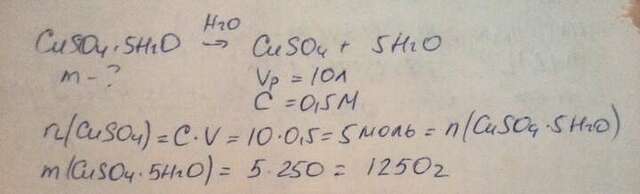 CuSO₄·5H₂O H₂O→ CuSO₄ + 5H₂O
m-? Vp = 10л
C = 0,5М
n(CuSO₄) = C·V = 10·0,5 = 5моль = n(CuSO₄·5H₂O)
m(CuSO₄·5H₂O) = 5·250 = 1250г